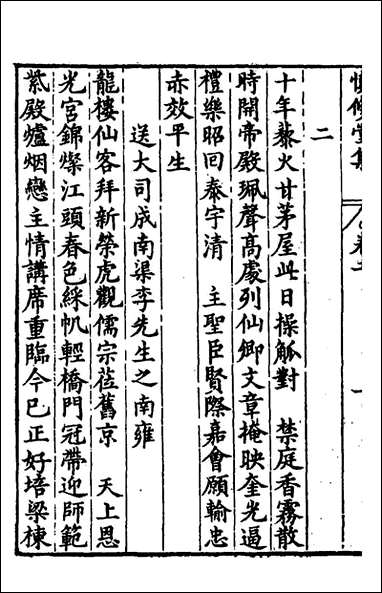 慎修堂集
二
十年藜火甘茅屋此日操觚對　禁庭香霧散
時開帝殿珮聲高處列仙卿文章掩映奎光逼
禮樂昭回泰宇清　主聖臣賢際嘉會願輸忠
赤效平生
送大司成南渠李先生之南雍
龍樓仙客拜新榮虎觀儒宗蒞舊京　天上恩
光宮錦燦江頭春色綵帆輕橋門冠帶迎師範
紫殿爐烟戀主情講席重臨今已正好培梁棟